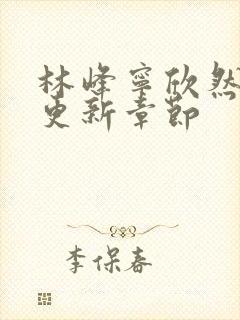 林峰寧欣然
更新章節
李保春